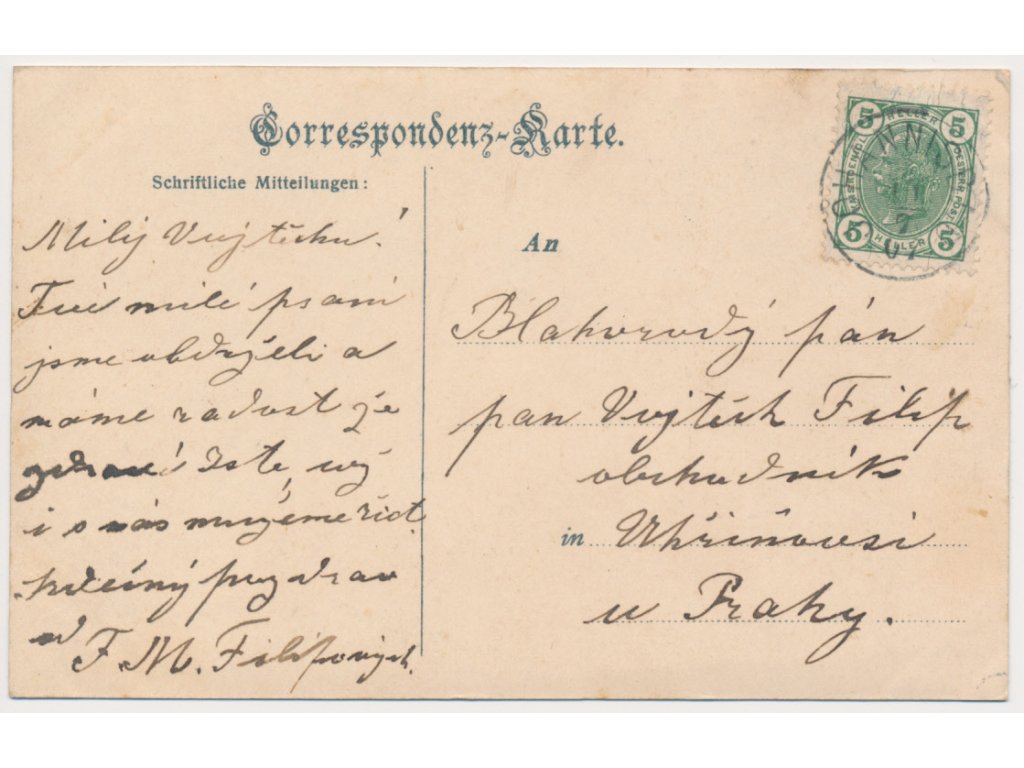 Correspondenz-Karte.
Schriftliche Mitteilungen:
Milý Vojtěchu!
Tvé milé psaní
jsme obdrželi a
máme radost že
zdraví Jste, což
i o nás mužeme říct.
Srdečný pozdrav
od
F. M. Filipových.
An
Blahorodý pán
pan Vojtěch Filip
obchodník
in Uhříňovsi
u Prahy.
5 HELLER 5
5 HELLER 5
7
07